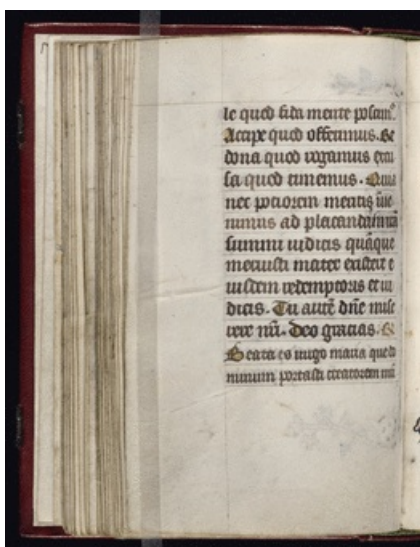 le quod fida mente poscim9.
Accipe quod offerimus. Re
dona quod rogamus excu
sa quod timemus. Quia
nec potiorem meritis īue
nimus ad placandam irā
summi iudicis quā que
meruisti mater existere e
iusdem redemptoris et iu
dicis. Tu autē dn̄e mise
rere nr̄i. Deo gracias. R
Beata es uirgo maria que do
minum portasti creatorem mū